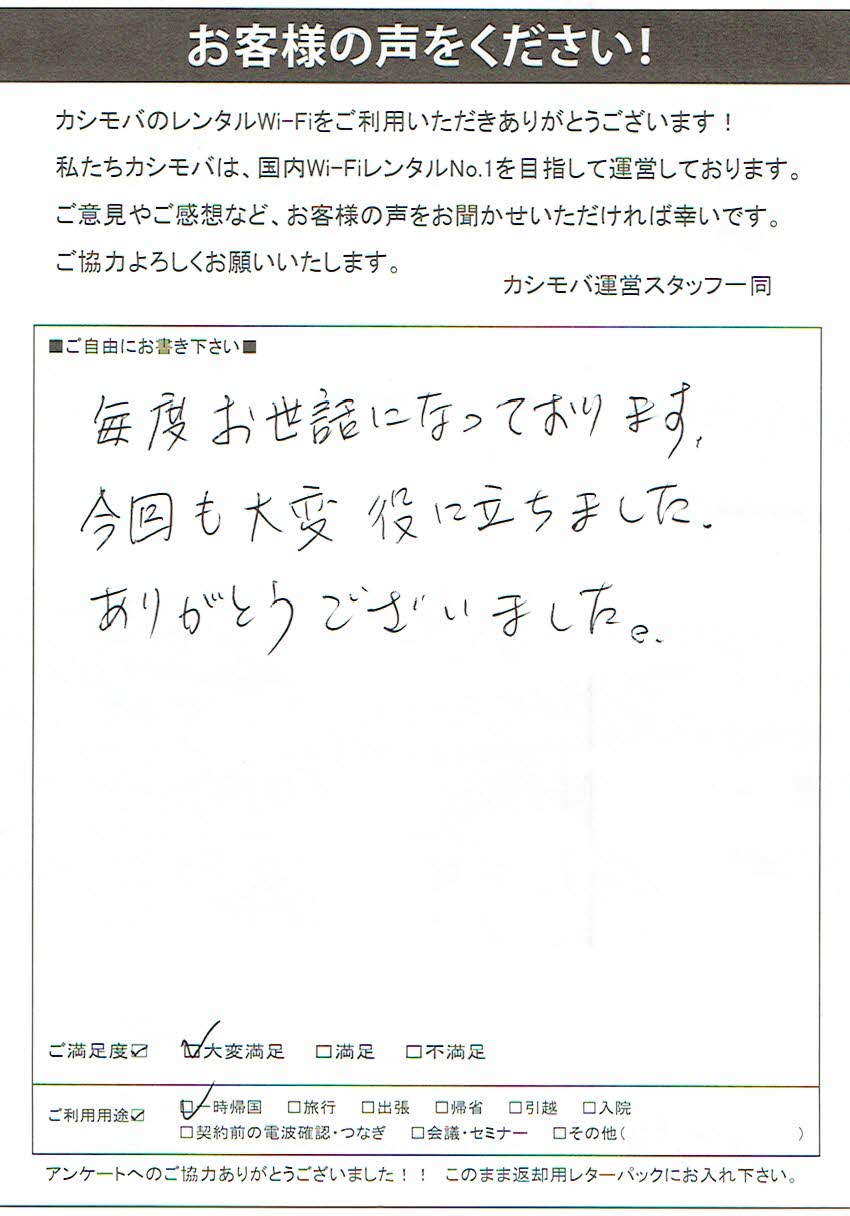 お客様の声をください!
カシモバのレンタルWi-Fiをご利用いただきありがとうございます!
私たちカシモバは、国内Wi-FiレンタルNo.1を目指して運営しております。
ご意見やご感想など、お客様の声をお聞かせいただければ幸いです。
ご協力よろしくお願いいたします。
カシモバ運営スタッフ一同
■ご自由にお書き下さい■
毎度お世話になっております.
今回も大変役に立ちました.
ありがとうございました。
ご満足度☑ ☑大変満足 □満足 □不満足
ご利用用途☑ ☑一時帰国 □旅行 □出張 □帰省 □引越 □入院
□契約前の電波確認・つなぎ □会議・セミナー □その他( )
アンケートへのご協力ありがとうございました!! このまま返却用レターパックにお入れ下さい。